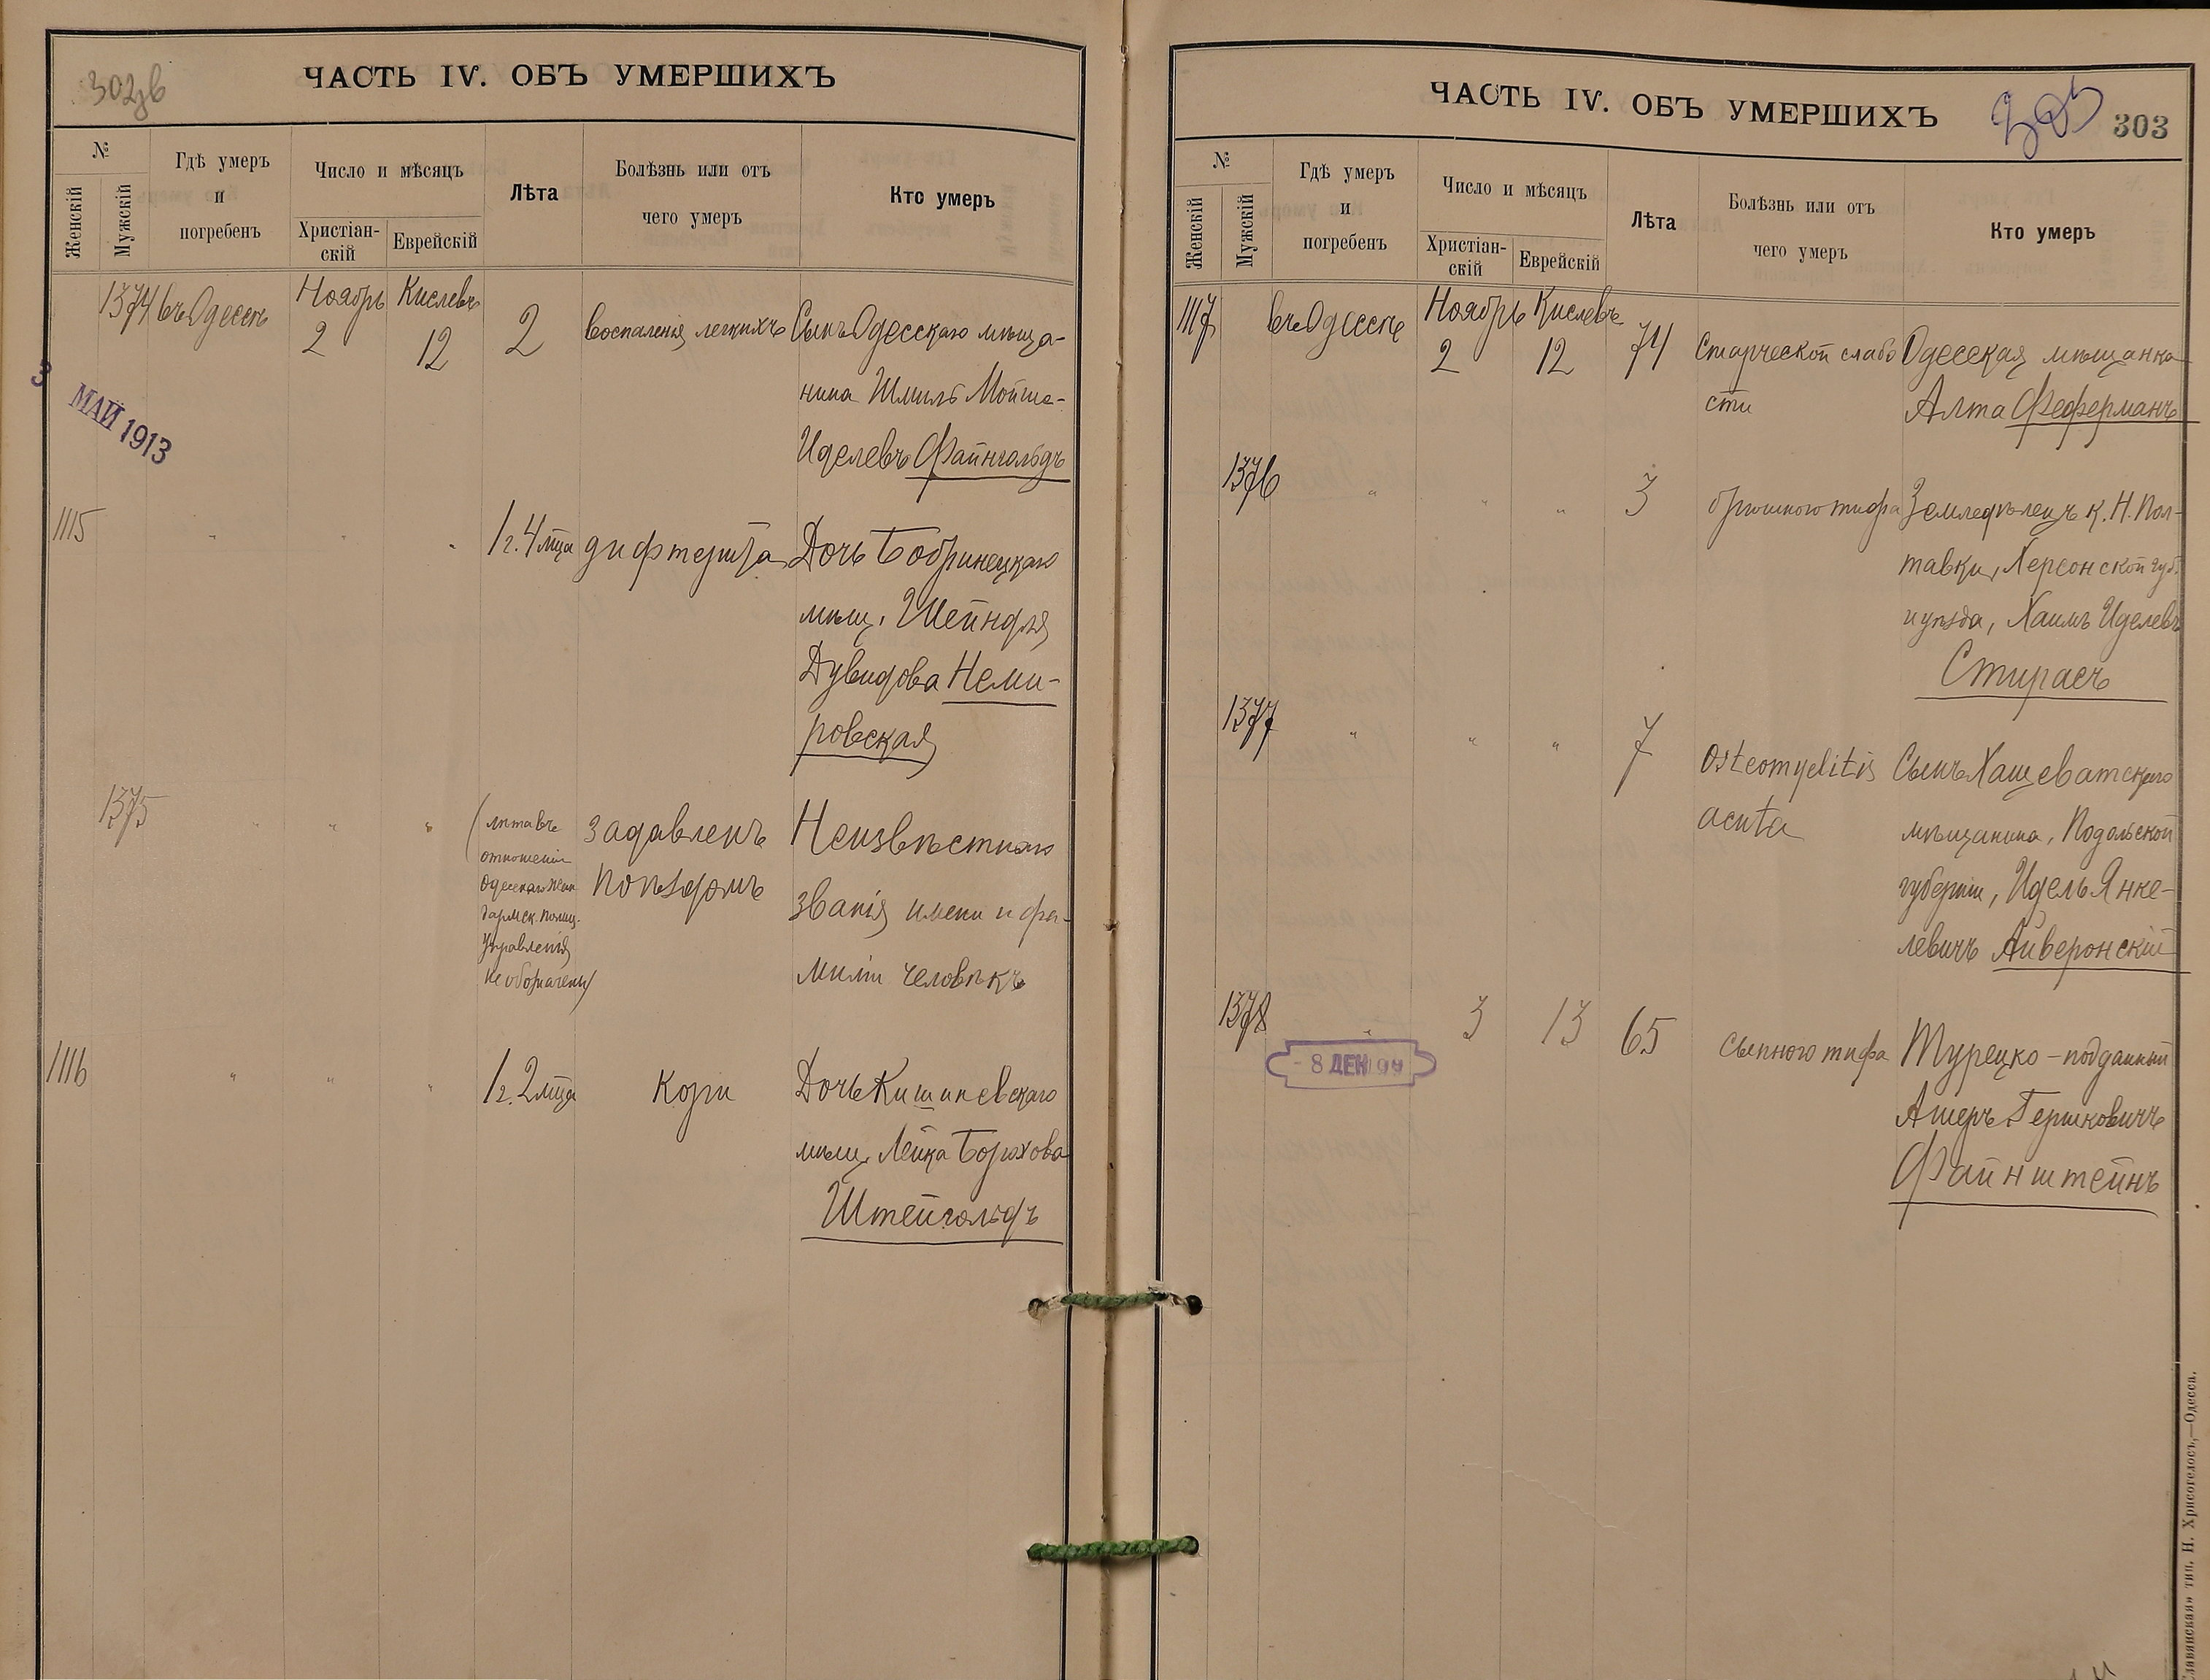 302зв
ЧАСТЬ IV. ОБЪ УМЕРШИХЪ
№
Женскій
Мужскій
Гдѣ умеръ
и
погребенъ
Число и мѣсяцъ
Христіан-
скій
Еврейскій
Лѣта
Болѣзнь или отъ
чего умеръ
Кто умеръ
1374 въ Одессѣ Ноябрь 2 Кислевъ 12 2 воспаленія легкихъ Сынъ Одесскаго мѣща-
нина Шмиль Мойше-
Иделевъ Файнгольдъ
3 МАЙ 1913
1115 " " " 1 г. 4 мца дифтерита Дочь Бобринецкаго
мѣщ. Шейндля
Дувидова Неми-
ровская
1375 " " " (лѣта въ
отношеніи
Одесскаго жан
дармск. полиц.
Управленія
не обозначены)
задавленъ
поѣздомъ
Неизвѣстнаго
званія имени и фа-
миліи человѣкъ
1116 " " " 1 г. 2 мца Кори Дочь Кишиневскаго
мѣщ. Лейка Борухова
Штейнгольдъ
ЧАСТЬ IV. ОБЪ УМЕРШИХЪ
303
№
Женскій
Мужскій
Гдѣ умеръ
и
погребенъ
Число и мѣсяцъ
Христіан-
скій
Еврейскій
Лѣта
Болѣзнь или отъ
чего умеръ
Кто умеръ
1117 въ Одессѣ Ноябрь 2 Кислевъ 12 74 Старческой слабо
сти
Одесская мѣщанка
Алта Феферманъ
1376 " " " 3 брюшного тифа Земледѣлецъ к. Н. Пол-
тавки, Херсонской губ.
и уѣзда, Хаимъ Иделевъ
Стирасъ
1377 " " " 7 Osteomyelitis
acuta
Сынъ Хащеватскаго
мѣщанина, Подольской
губерніи, Идель Янке-
левичъ Айверонскій
1378 " 3 13 65 сыпного тифа Турецко-подданный
Ашеръ Гершковичъ
Файнштейнъ
- 8 ДЕК 99
«Славянская» тип. Н. Хрисогелосъ,—Одесса.